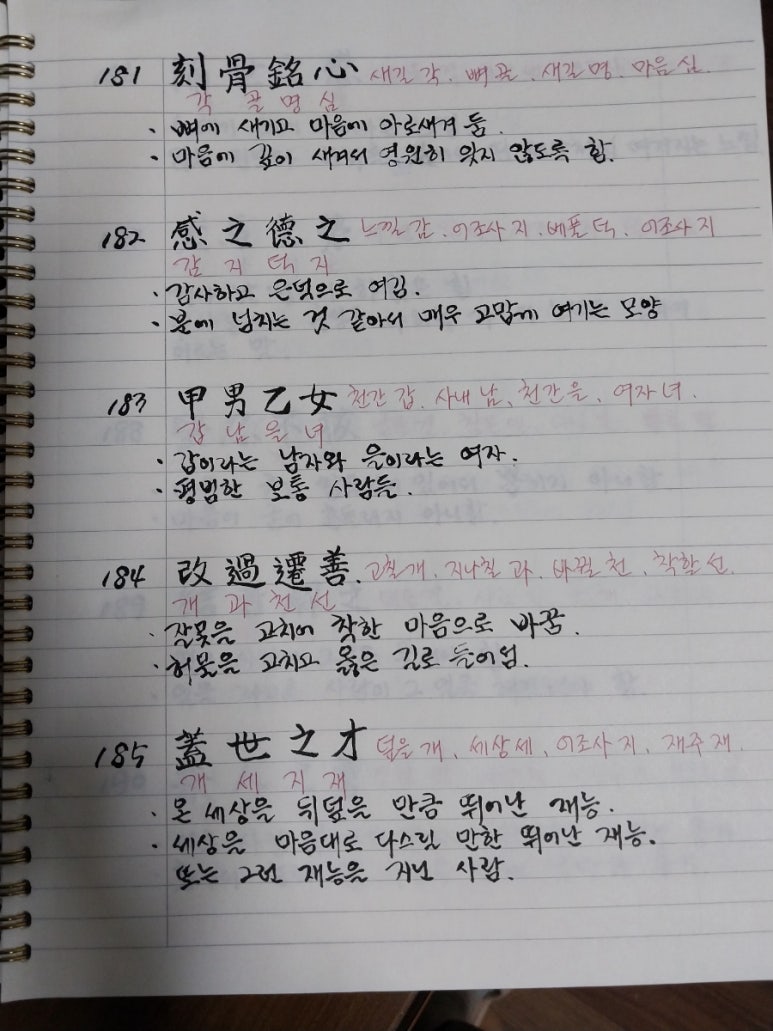 181 刻骨銘心 새길 각. 뼈골. 새길 명. 마음 심.
각 골 명 심
· 뼈에 새기고 마음에 아로새겨 둠.
· 마음에 깊이 새겨서 영원히 잊지 않도록 함.
182 感之德之 느낄 감. 어조사 지. 베풀 덕. 어조사 지
감 지 덕 지
· 감사하고 은덕으로 여김.
· 분에 넘치는 것 같아서 매우 고맙게 여기는 모양
183 甲男乙女 천간 갑. 사내 남. 천간 을. 여자 녀.
갑 남 을 녀
· 갑이라는 남자와 을이라는 여자.
· 평범한 보통 사람들.
184 改過遷善. 고칠 개. 지나칠 과. 바뀔 천. 착할 선.
개 과 천 선
· 잘못을 고치어 착한 마음으로 바꿈.
· 허물을 고치고 옳은 길로 들어섬.
185 蓋世之才 덮을 개. 세상 세. 어조사 지. 재주 재.
개 세 지 재
· 온 세상을 뒤덮을 만큼 뛰어난 재능.
· 세상을 마음대로 다스릴 만한 뛰어난 재능.
또는 그런 재능을 지닌 사람.